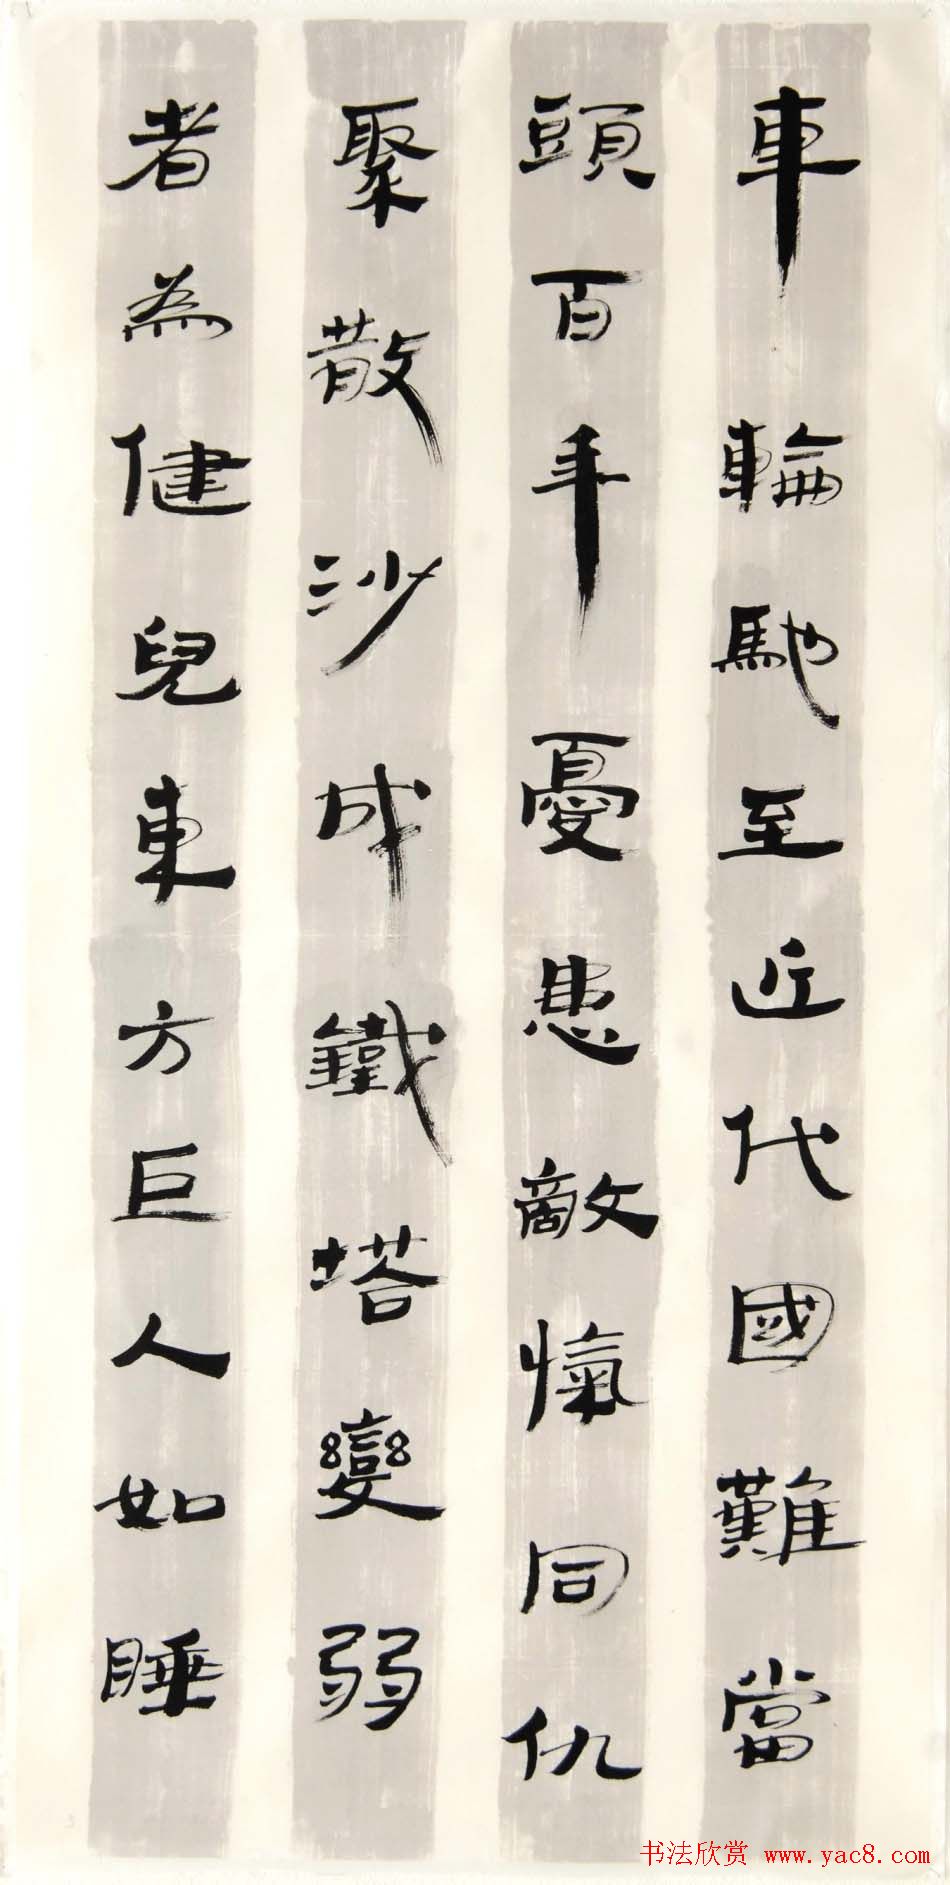 車輪馳至近代國難當
頭百年憂患敵愾同仇
聚散沙成鐵塔變弱
者為健兒東方巨人如睡
书法欣赏 www.yac8.com